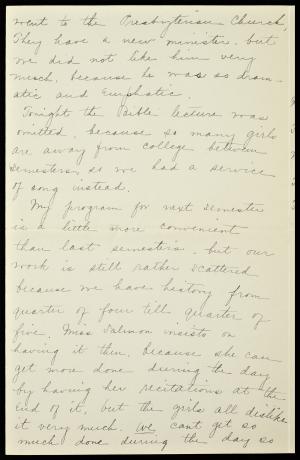 went to the Presbyterian Church,
They have a new minister, but
we did not like him very
much, because he was so dram-
atic and Emphatic.
Tonight the Bible lecture was
omitted, because so many girls
are away from college between
semesters, so we had a service
of song instead.
My program for next semester
is a little more convenient
than last semester's, but our
work is still rather scattered
because we have history from
quarter of four till quarter of
five. Miss Salmon insists on
having it then, because she can
get more done during the day
by having her recitations at the
end of it, but the girls all dislike
it very much. We can't get so
much done during the day so